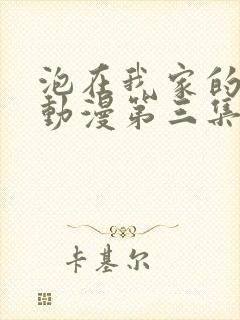 泡在我家的
動漫第三集
卡基尔